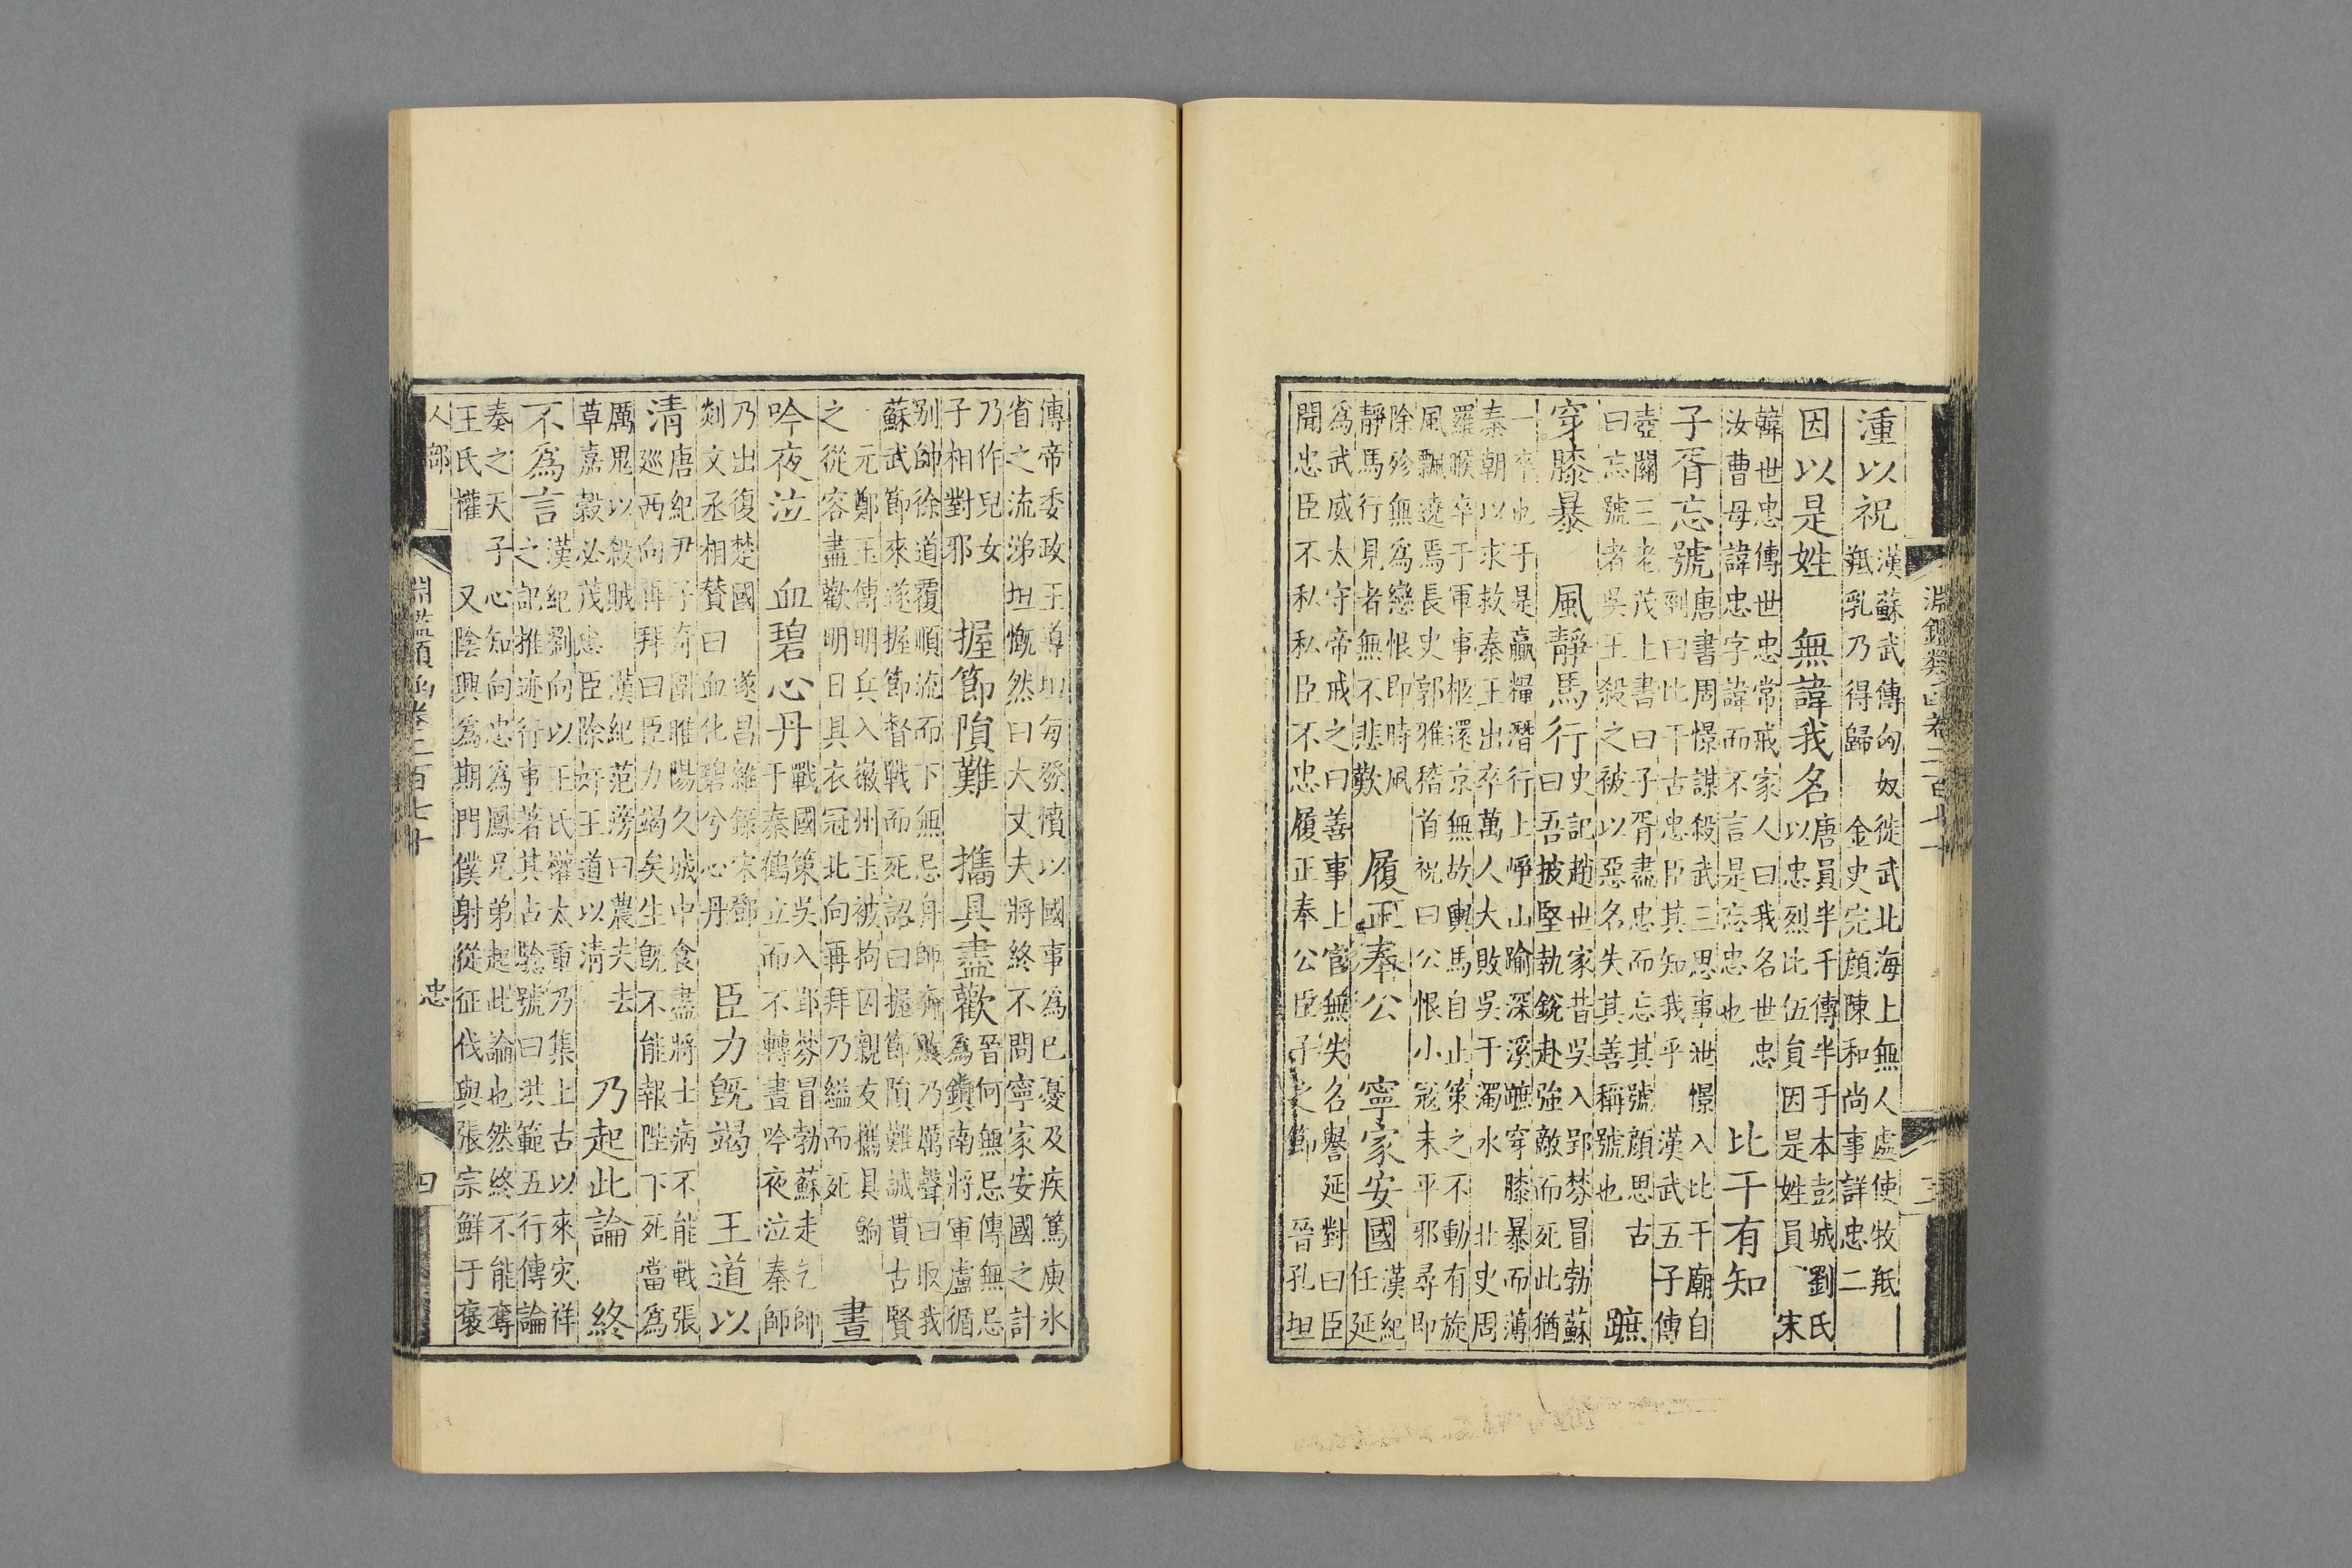 淵鑑類函卷二百七十 三
湩以祝
漢蘇武傳匈奴徙武北海上無人處使牧羝
羝乳乃得歸 金史完顏陳和尚事詳忠二
因以是姓 無諱我名
唐員半千傳半千本彭城劉氏
以忠烈比伍員因是姓員 宋
韓世忠傳世忠常戒家人曰我名世忠
汝曹毋諱忠字諱而不言是忘忠也
比干有知
子胥忘號
唐書周憬謀殺武三思事泄憬入比干廟自
剄曰比干古忠臣其知我乎 漢武五子傳
壺關三老茂上書曰子胥盡忠而忘其號顏思古
曰忘號者吳王殺之被以惡名失其善稱號也
蹠
穿膝暴 風靜馬行
史記趙世家昔吳入郢棼冒勃蘇
曰吾披堅執銳赴強敵而死此猶
一卒也于是贏糧潛行上崢山踰深溪蹠穿膝暴而薄
秦朝以求救秦王出卒萬人大敗吳于濁水 北史周
羅喉卒于軍事柩還京無故輿馬自止策之不動有旋
風飄遶焉長史郭雅稽首祝曰公恨小寇未平邪尋即
除殄無爲戀恨即時風
靜馬行見者無不悲歎
履正奉公 寧家安國
漢紀
任延
爲武威太守帝戒之曰善事上官無失名譽延對曰臣
聞忠臣不私私臣不忠履正奉公臣子之節 晉孔坦
傳帝委政王導坦每發憤以國事爲已憂及疾篤庾氷
省之流涕坦慨然曰大丈夫將終不問寧家安國之計
乃作兒女
子相對邪
握節隕難 攜具盡歡
晉何無忌傳無忌
爲鎮南將軍盧循
别帥徐道覆順流而下無忌舟師奔敗乃厲聲曰取我
蘇武節來遂握節督戰而死詔曰握節隕難誠貫古賢
元鄭玉傳明兵入徽州玉被拘囚親友攜具餉
之從容盡歡明日具衣冠北向再拜乃縊而死
晝
吟夜泣 血碧心丹
戰國策吳入郢棼冒勃蘇走乞師
于秦鶴立而不轉晝吟夜泣秦師
乃出復楚國 遂昌雜錄宋鄧
剡文丞相贊曰血化碧兮心丹
臣力既竭 王道以
清
唐紀尹子奇圍睢陽久城中食盡將士病不能戰張
巡西向再拜曰臣力竭矣生既不能報陛下死當爲
厲鬼以殺賊 漢紀范滂曰農夫去
草嘉榖必茂忠臣除奸王道以清
乃起此論 終
不爲言
漢紀劉向以王氏權太重乃集上古以來災祥
之記推迹行事著其占驗號曰洪範五行傳論
奏之天子心知向忠爲鳳兄弟起此論也然終不能奪
王氏權 又陰興爲期門僕射從征伐與張宗鮮于裒
人部 淵鑑類函卷二百七十 忠 四